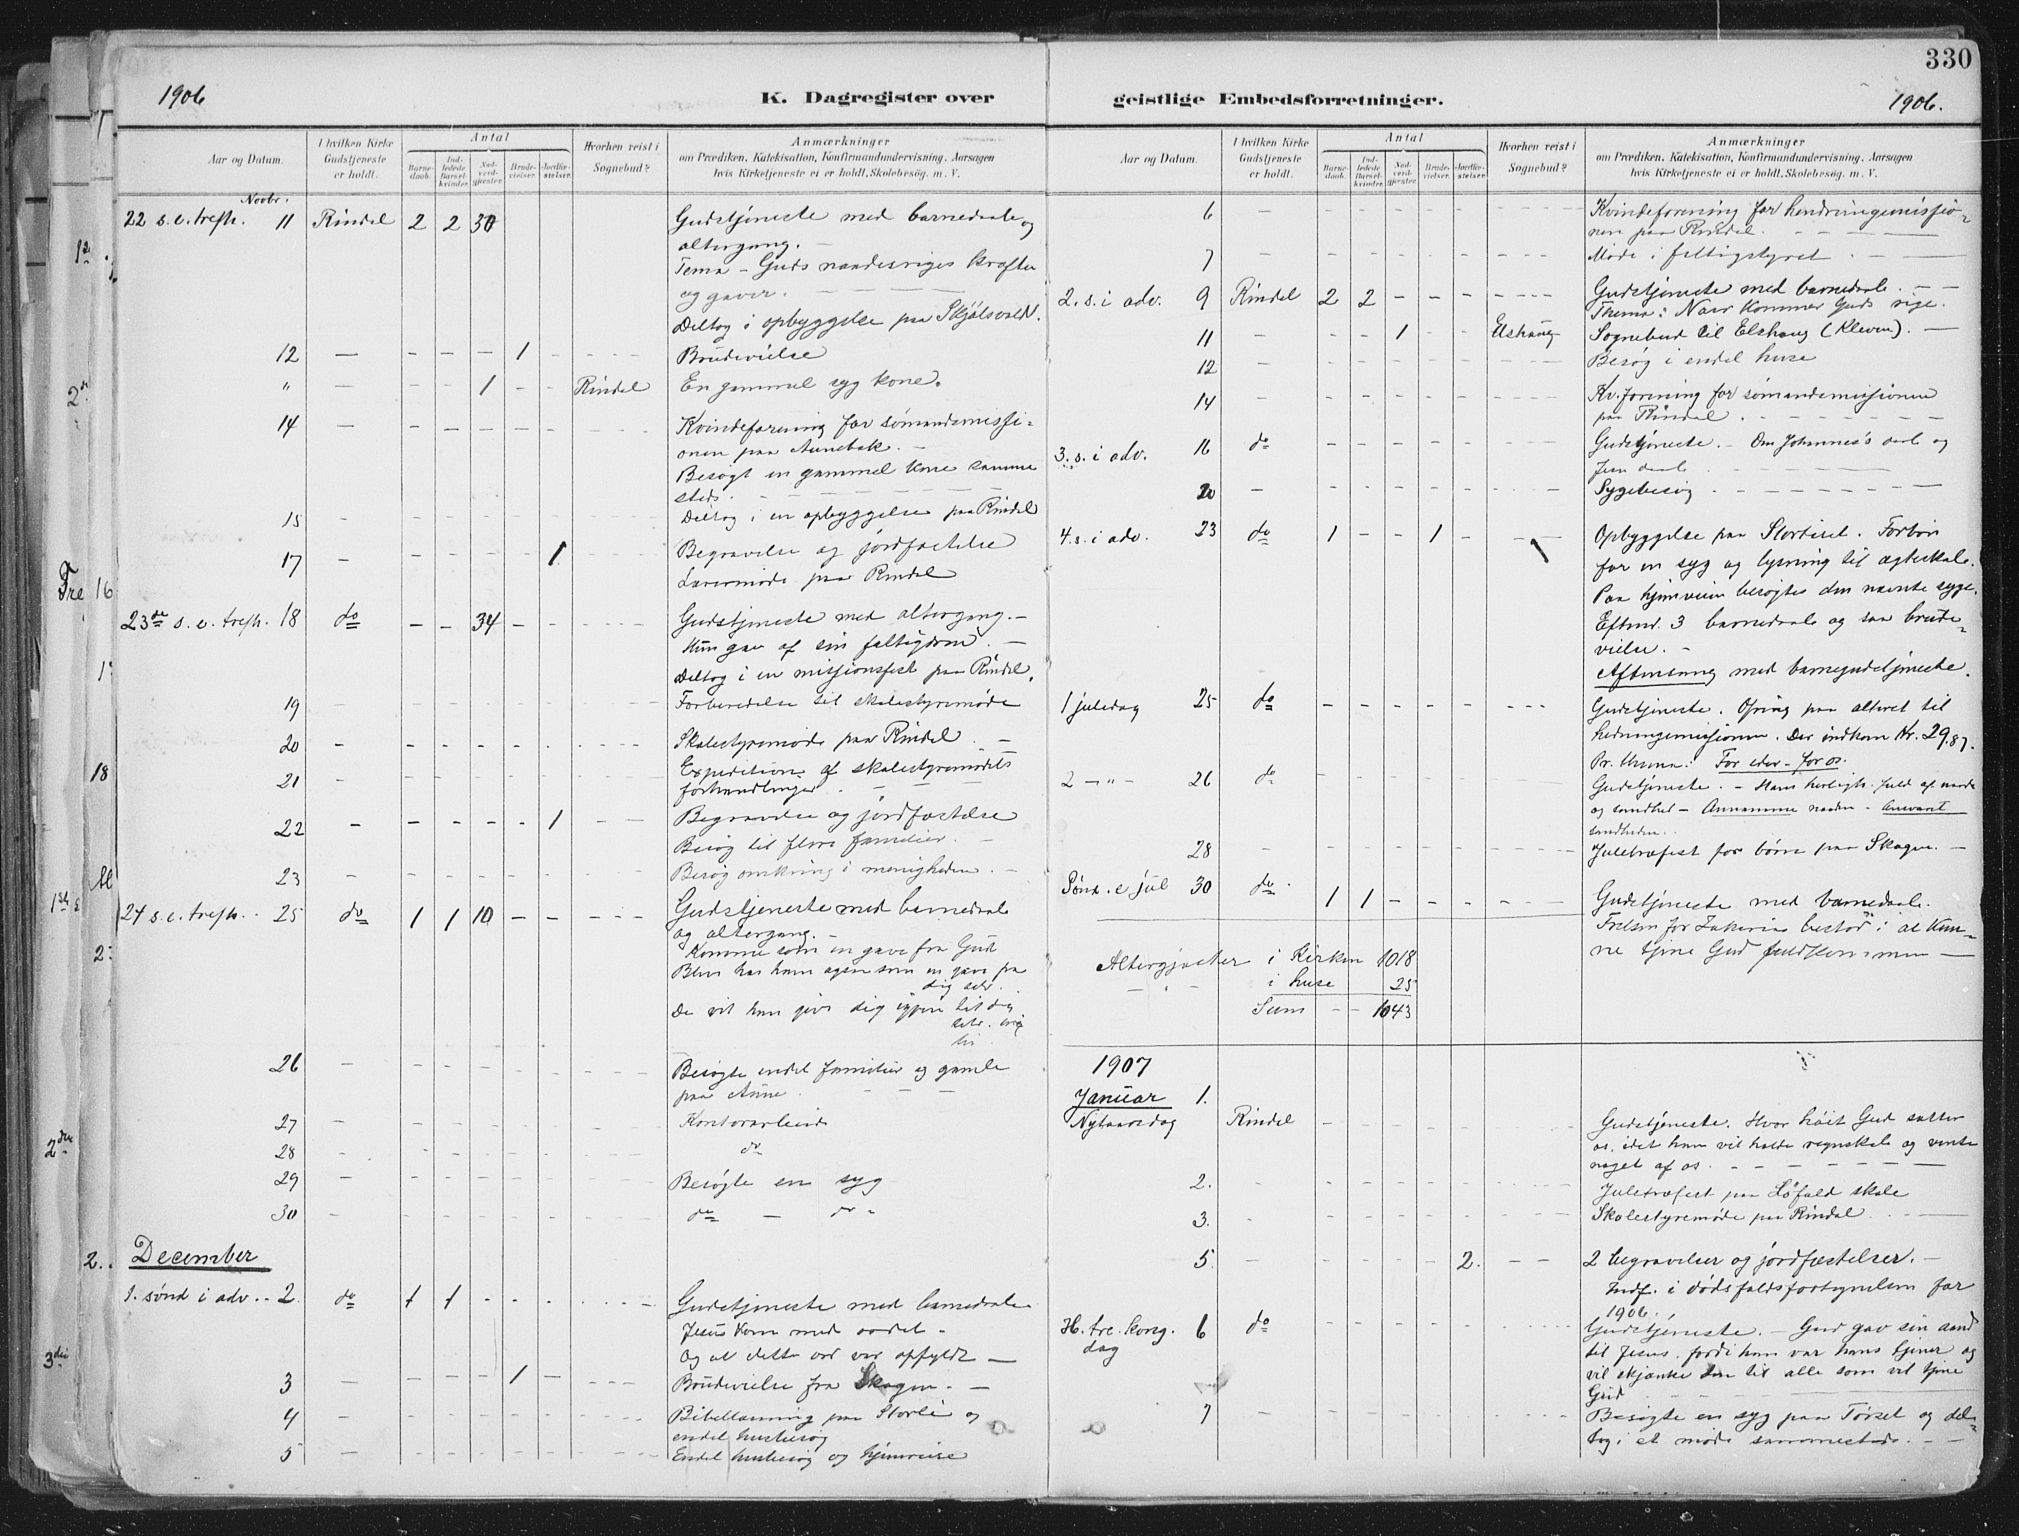 330
1906
K. Dagregister over
geistlige Embedsforretninger.
1906.
Aar og Datum.
I hvilken Kirke Gudstjeneste er holdt.
Antal
Barnedaab.
Indledede Barselkvinder.
Nadverdgjester.
Brudevielser.
Jordfæstelser.
Hvorhen reist i Sognebud?
Anmærkninger
om Prædiken, Katekisation, Konfirmandundervisning, Aarsagen
hvis Kirketjeneste ei er holdt, Skolebesøg, m. V.
Novbr.
22 s. e. trefh. 11 Rindal 2 2 30 Gudstjeneste med barnedaab og
altergang. –
Tema – Guds naadesriges kræfter
og gaver. –
Deltog i opbyggelse paa
12 — - - - 1 - - - - Brudevielse
" — - - 1 - - Rindal En gammel syg kone.
14 Kvindeforening for sømandsmissi-
onen paa
Besøgt en gammel kone samme
steds.
15 Deltog i en opbyggelse paa Rindal
17 1 Begravelse og jordfæstelse
Lærermøde paa Rindal
23de s. e. trefh. 18 do - - 34 - - Gudstjeneste med altergang. –
Hun gav af sin fattigdom. –
Deltog i en missionsfest paa Rindal.
19 Forberedelse til skolestyremøde
20 Skolestyremøde paa Rindal. –
21 Expedition af skolestyremødets
forhandlinger.
22 1 Begravelse og jordfæstelse
Besøg til flere familier. –
23 Besøg omkring i menigheden. –
24 s. e. trefh. 25 do 1 1 10 - - Gudstjeneste med barnedaab
og altergang. –
Komme som en gave fra Gud
dig selv.
De vil han give dig igjen til dig
26 Besøgte endel familier og gamle
paa
27 Kontorarbeide
28 do
29 Besøgte en syg
30 do — do
December
1. sønd i adv. 2 do 1 1 Gudstjeneste med barnedaab
Jesus kom med ordet –
Og at dette ord var opfyldt —
3 1 Brudevielse fra Skogen. –
4 Bibellæsning paa Storli og
endel husbesøg
5 Endel husbesøg og hjemreise
Aar og Datum.
I hvilken Kirke Gudstjeneste er holdt.
Antal
Barnedaab.
Indledede Barselkvinder.
Nadverdgjester.
Brudevielser.
Jordfæstelser.
Hvorhen reist i Sognebud?
Anmærkninger
om Prædiken, Katekisation, Konfirmandundervisning, Aarsagen
hvis Kirketjeneste ei er holdt, Skolebesøg, m. V.
6 Kvindeforening for hedningemissio-
nen paa Rindal.
7 Møde i fattigstyret
2. s. i adv. 9 Rindal 2 2 Gudstjeneste med barnedaab.
Thema: Naar kommer Guds rige.
11 1 Elshaug Sognebud til Elshaug (Kleven). —
12 Besøg i endel huse
14 Kv.forening for sømandsmissionen
paa Rindal.
3. s. i adv. 16 do Gudstjeneste. – Om Johannes's daab og
Jesu daab.
20 Sygebesøg
4. s. i adv. 23 do 1 - - 1 Opbyggelse paa Forbøn
for en syg og lysning til ægteskab.
Paa hjemveien besøgtes den nævnte syge.
Eftmd. 3 barnedaab og saa brude-
vielse. –
Aftensang med barnegudstjeneste.
1 juledag 25 do Gudstjeneste. Ofring paa alteret til
hedningemissionen. Der indkom Kr. 29.87.
Pr. thema: For eder – for os.
2 – " – 26 do Gudstjeneste. – Hans herligh. fuld af naade
og sandhed – Annamme naaden – Ansvaret
sandheden.
28 Juletræfest for børn paa Skogen. –
Sønd. e jul 30 do 1 1 Gudstjeneste med barnedaab.
Frelsen for Zakarias bestod i at kun-
ne tjene Gud fuldkommen —
Altergjæster i Kirken 1018
– " – i huse 25
Sum - - 1043
1907
Januar 1.
Nytaarsdag Rindal Gudstjeneste. Hvor høit Gud sætter
os, idet han vil holde regnskab og vente
noget af os.
2. Juletræfest paa Løfald skole
3. Skolestyremøde paa Rindal.
5. 2. 2 begravelser og jordfæstelser. –
Indf. i dødsfaldsfortegnelsen for
1906.
H. tre kong. 6 do Gudstjeneste. – Gud gav sin aand
dag
til Jesus, fordi han var hans tjener og
vil skjænke den til alle som vil tjene
Gud
7 Besøgte en syg paa Tørset og del-
tog i et møde sammesteds. –